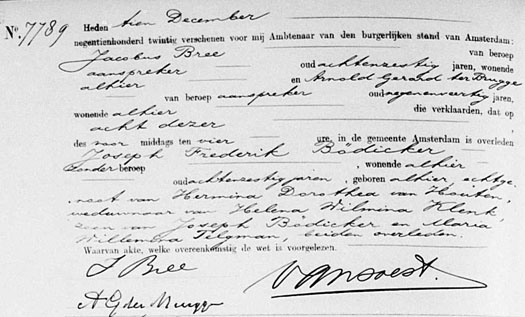 No. 7789
Heden tien December
negentienhonderd twintig verschenen voor mij Ambtenaar van den burgerlijken stand van Amsterdam:
Jacobus Bree van beroep
aanspreker oud achtenzestig jaren, wonende
alhier en Arnold Gerard ter Brugge
van beroep aanspreker oud negenenveertig jaren,
wonende alhier die verklaarden, dat op
acht dezer
des voor middags ten vier ure, in de gemeente Amsterdam is overleden
Joseph Frederik Bödicker
zonder beroep , wonende alhier
oud achtenzestig jaren , geboren alhier echtge-
noot van Hermina Dorothea van Houten,
weduwnaar van Helena Wilmina Klenk
zoon van Joseph Bödicker en Maria
Willemina Telgman, beiden overleden.
Waarvan akte, welke overeenkomstig de wet is voorgelezen.
J Bree
van Soest.